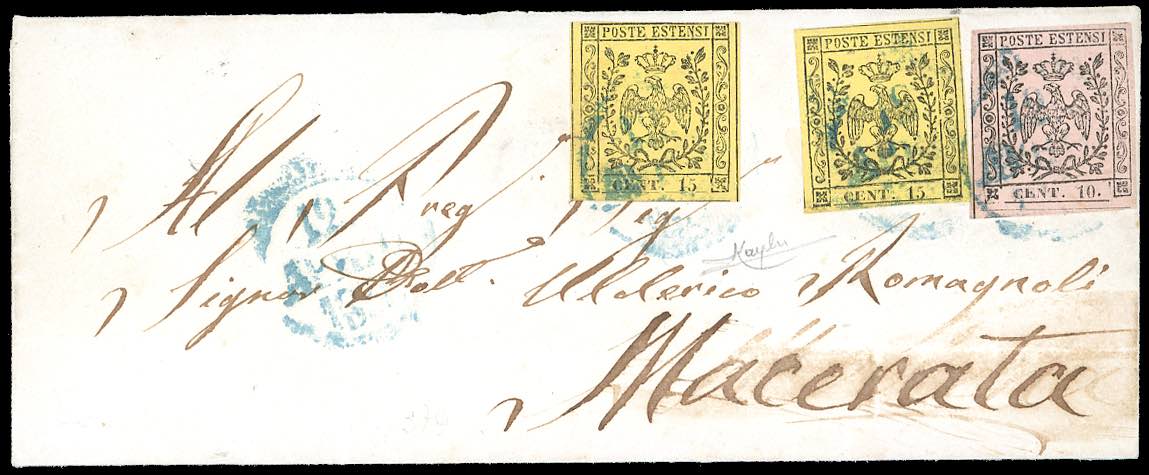 POSTE ESTENSI
CENT. 15
POSTE ESTENSI
CENT. 15
POSTE ESTENSI
CENT. 10.
Al Preg. Sig.
Signor Dott. Ulderico Romagnoli
Macerata